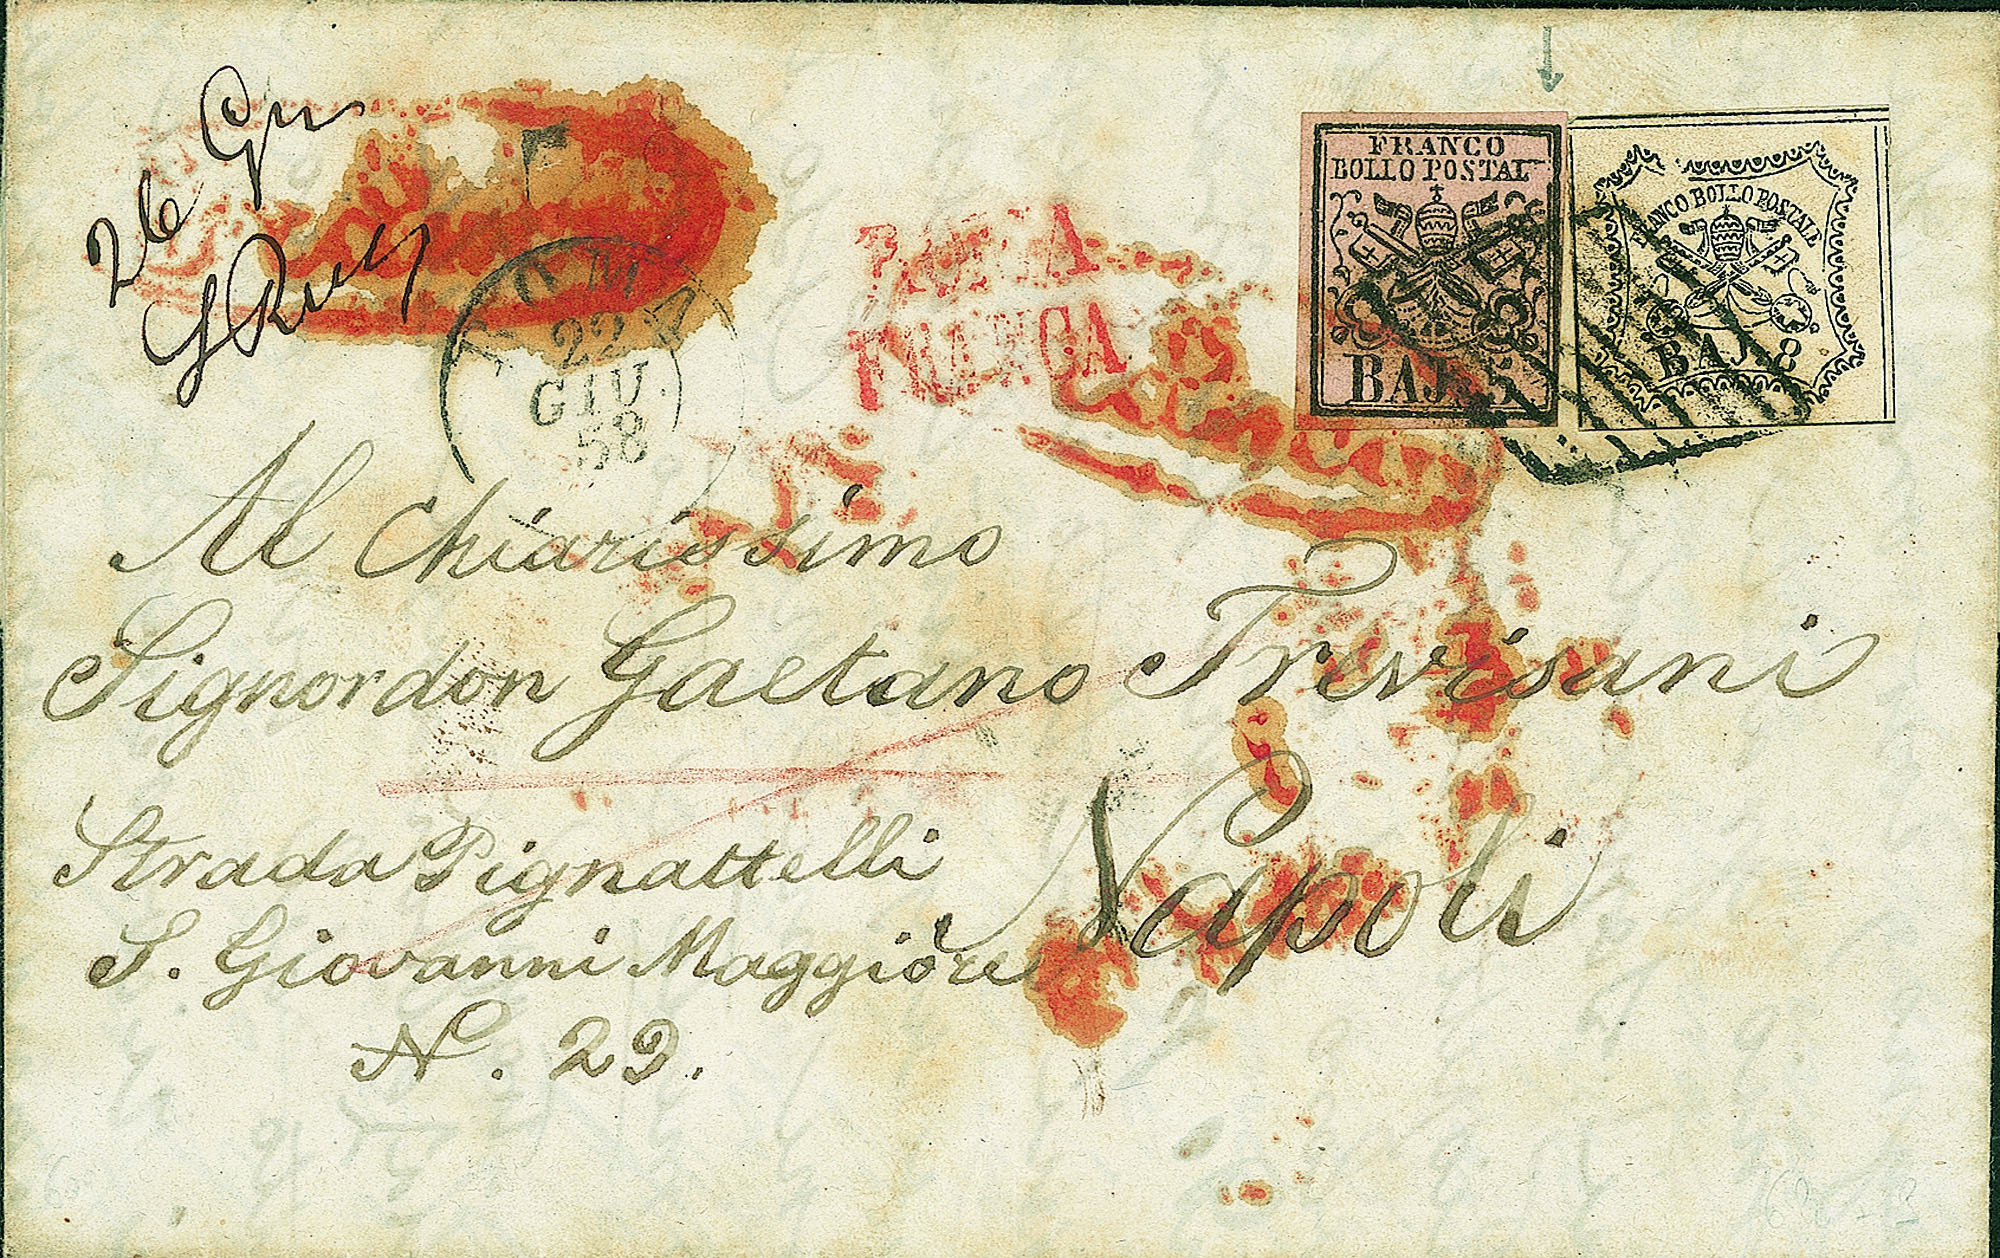 26 Gru
FRANCO
BOLLO POSTALE
BAJ. 5
FRANCO BOLLO POSTALE
BAJ. 8
ROMA
22
GIU.
58
FRANCA
Al Chiarissimo
Signordon Gaetano Trevisani
Napoli
Strada Pignattelli
S. Giovanni Maggiore
N. 29.